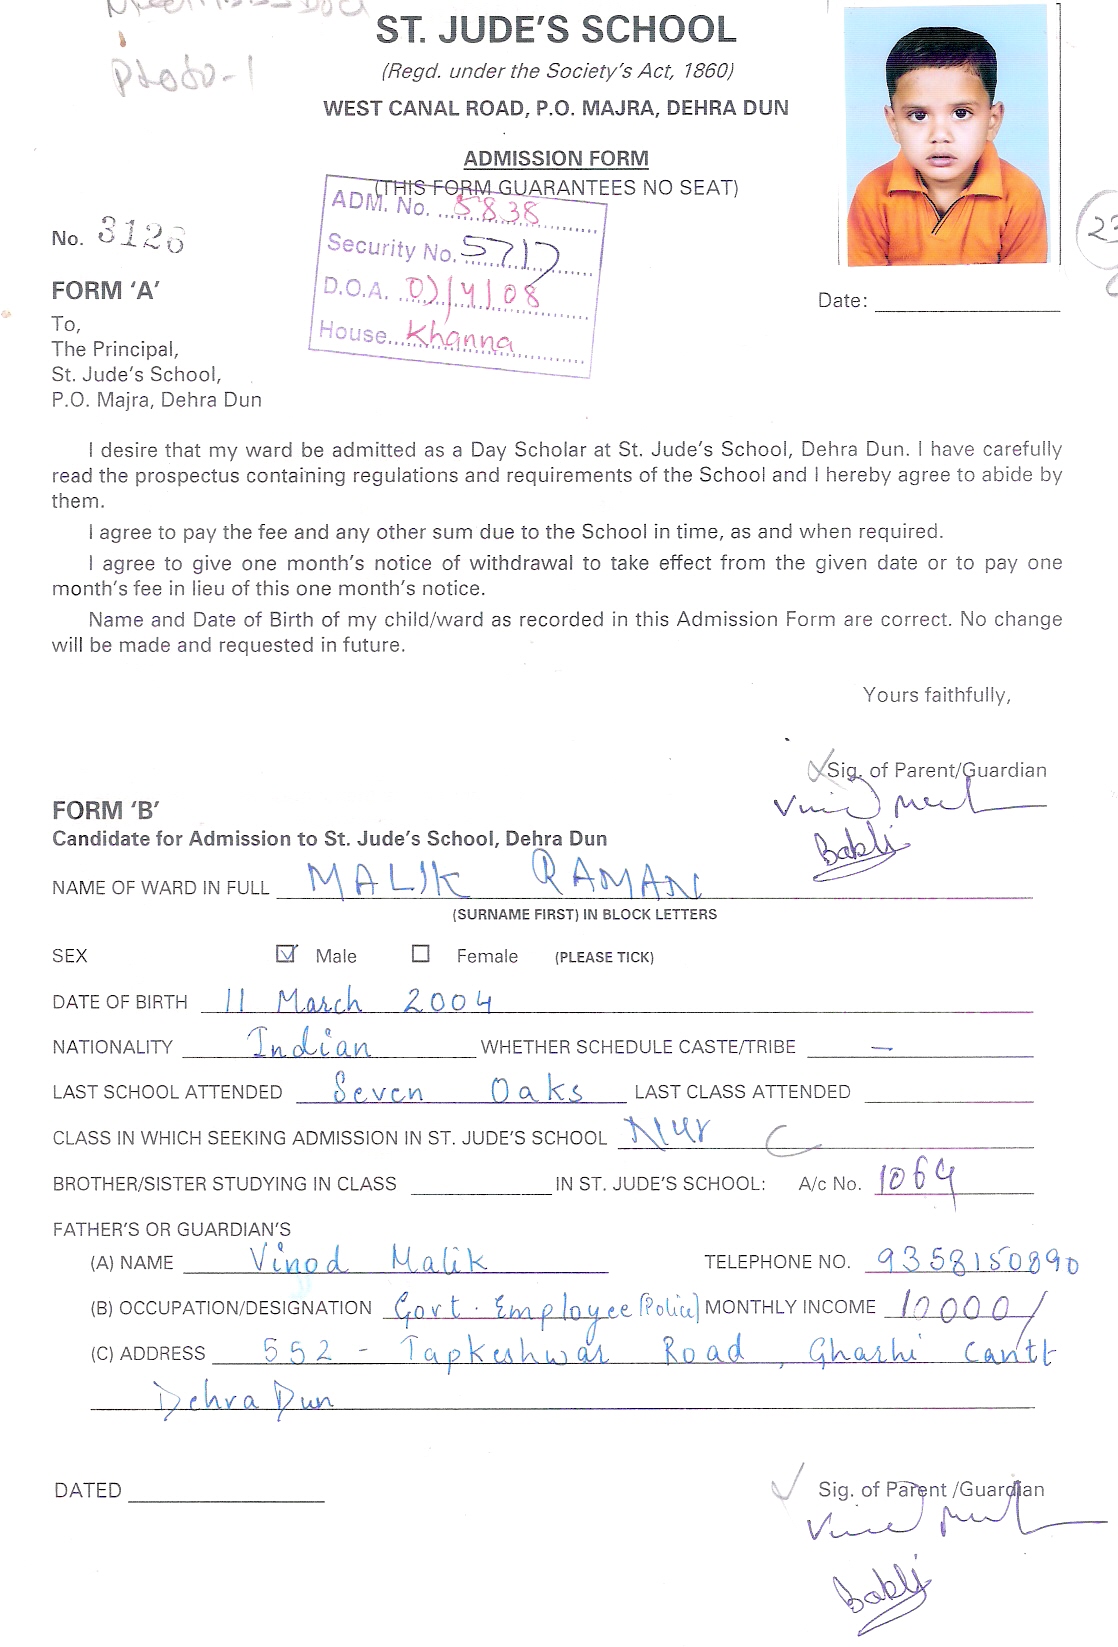 ST. JUDE'S SCHOOL
Photo-1
(Regd. under the Society's Act, 1860)
WEST CANAL ROAD, P.O. MAJRA, DEHRA DUN
ADMISSION FORM
(THIS FORM GUARANTEES NO SEAT)
ADM. No. 5838
No. 3126
Security No. 5717
23
D.O.A. 02/4/08
House Khanna
FORM 'A'
Date:
To,
The Principal,
St. Jude's School,
P.O. Majra, Dehra Dun
I desire that my ward be admitted as a Day Scholar at St. Jude's School, Dehra Dun. I have carefully
read the prospectus containing regulations and requirements of the School and I hereby agree to abide by
them.
I agree to pay the fee and any other sum due to the School in time, as and when required.
I agree to give one month's notice of withdrawal to take effect from the given date or to pay one
month's fee in lieu of this one month's notice.
Name and Date of Birth of my child/ward as recorded in this Admission Form are correct. No change
will be made and requested in future.
Yours faithfully,
Sig. of Parent/Guardian
Babli
FORM 'B'
Candidate for Admission to St. Jude's School, Dehra Dun
NAME OF WARD IN FULL MALIK RAMAN
(SURNAME FIRST) IN BLOCK LETTERS
SEX Male Female (PLEASE TICK)
DATE OF BIRTH 11 March 2004
NATIONALITY Indian WHETHER SCHEDULE CASTE/TRIBE —
LAST SCHOOL ATTENDED Seven Oaks LAST CLASS ATTENDED
CLASS IN WHICH SEEKING ADMISSION IN ST. JUDE'S SCHOOL Nur C
BROTHER/SISTER STUDYING IN CLASS IN ST. JUDE'S SCHOOL: A/c No. 1064
FATHER'S OR GUARDIAN'S
(A) NAME Vinod Malik TELEPHONE NO. 9358150890
(B) OCCUPATION/DESIGNATION Govt. Employee (Police) MONTHLY INCOME 10000/
(C) ADDRESS 552 - Tapkeshwar Road, Gharhi Cantt
Dehra Dun
DATED Sig. of Parent /Guardian
Babli